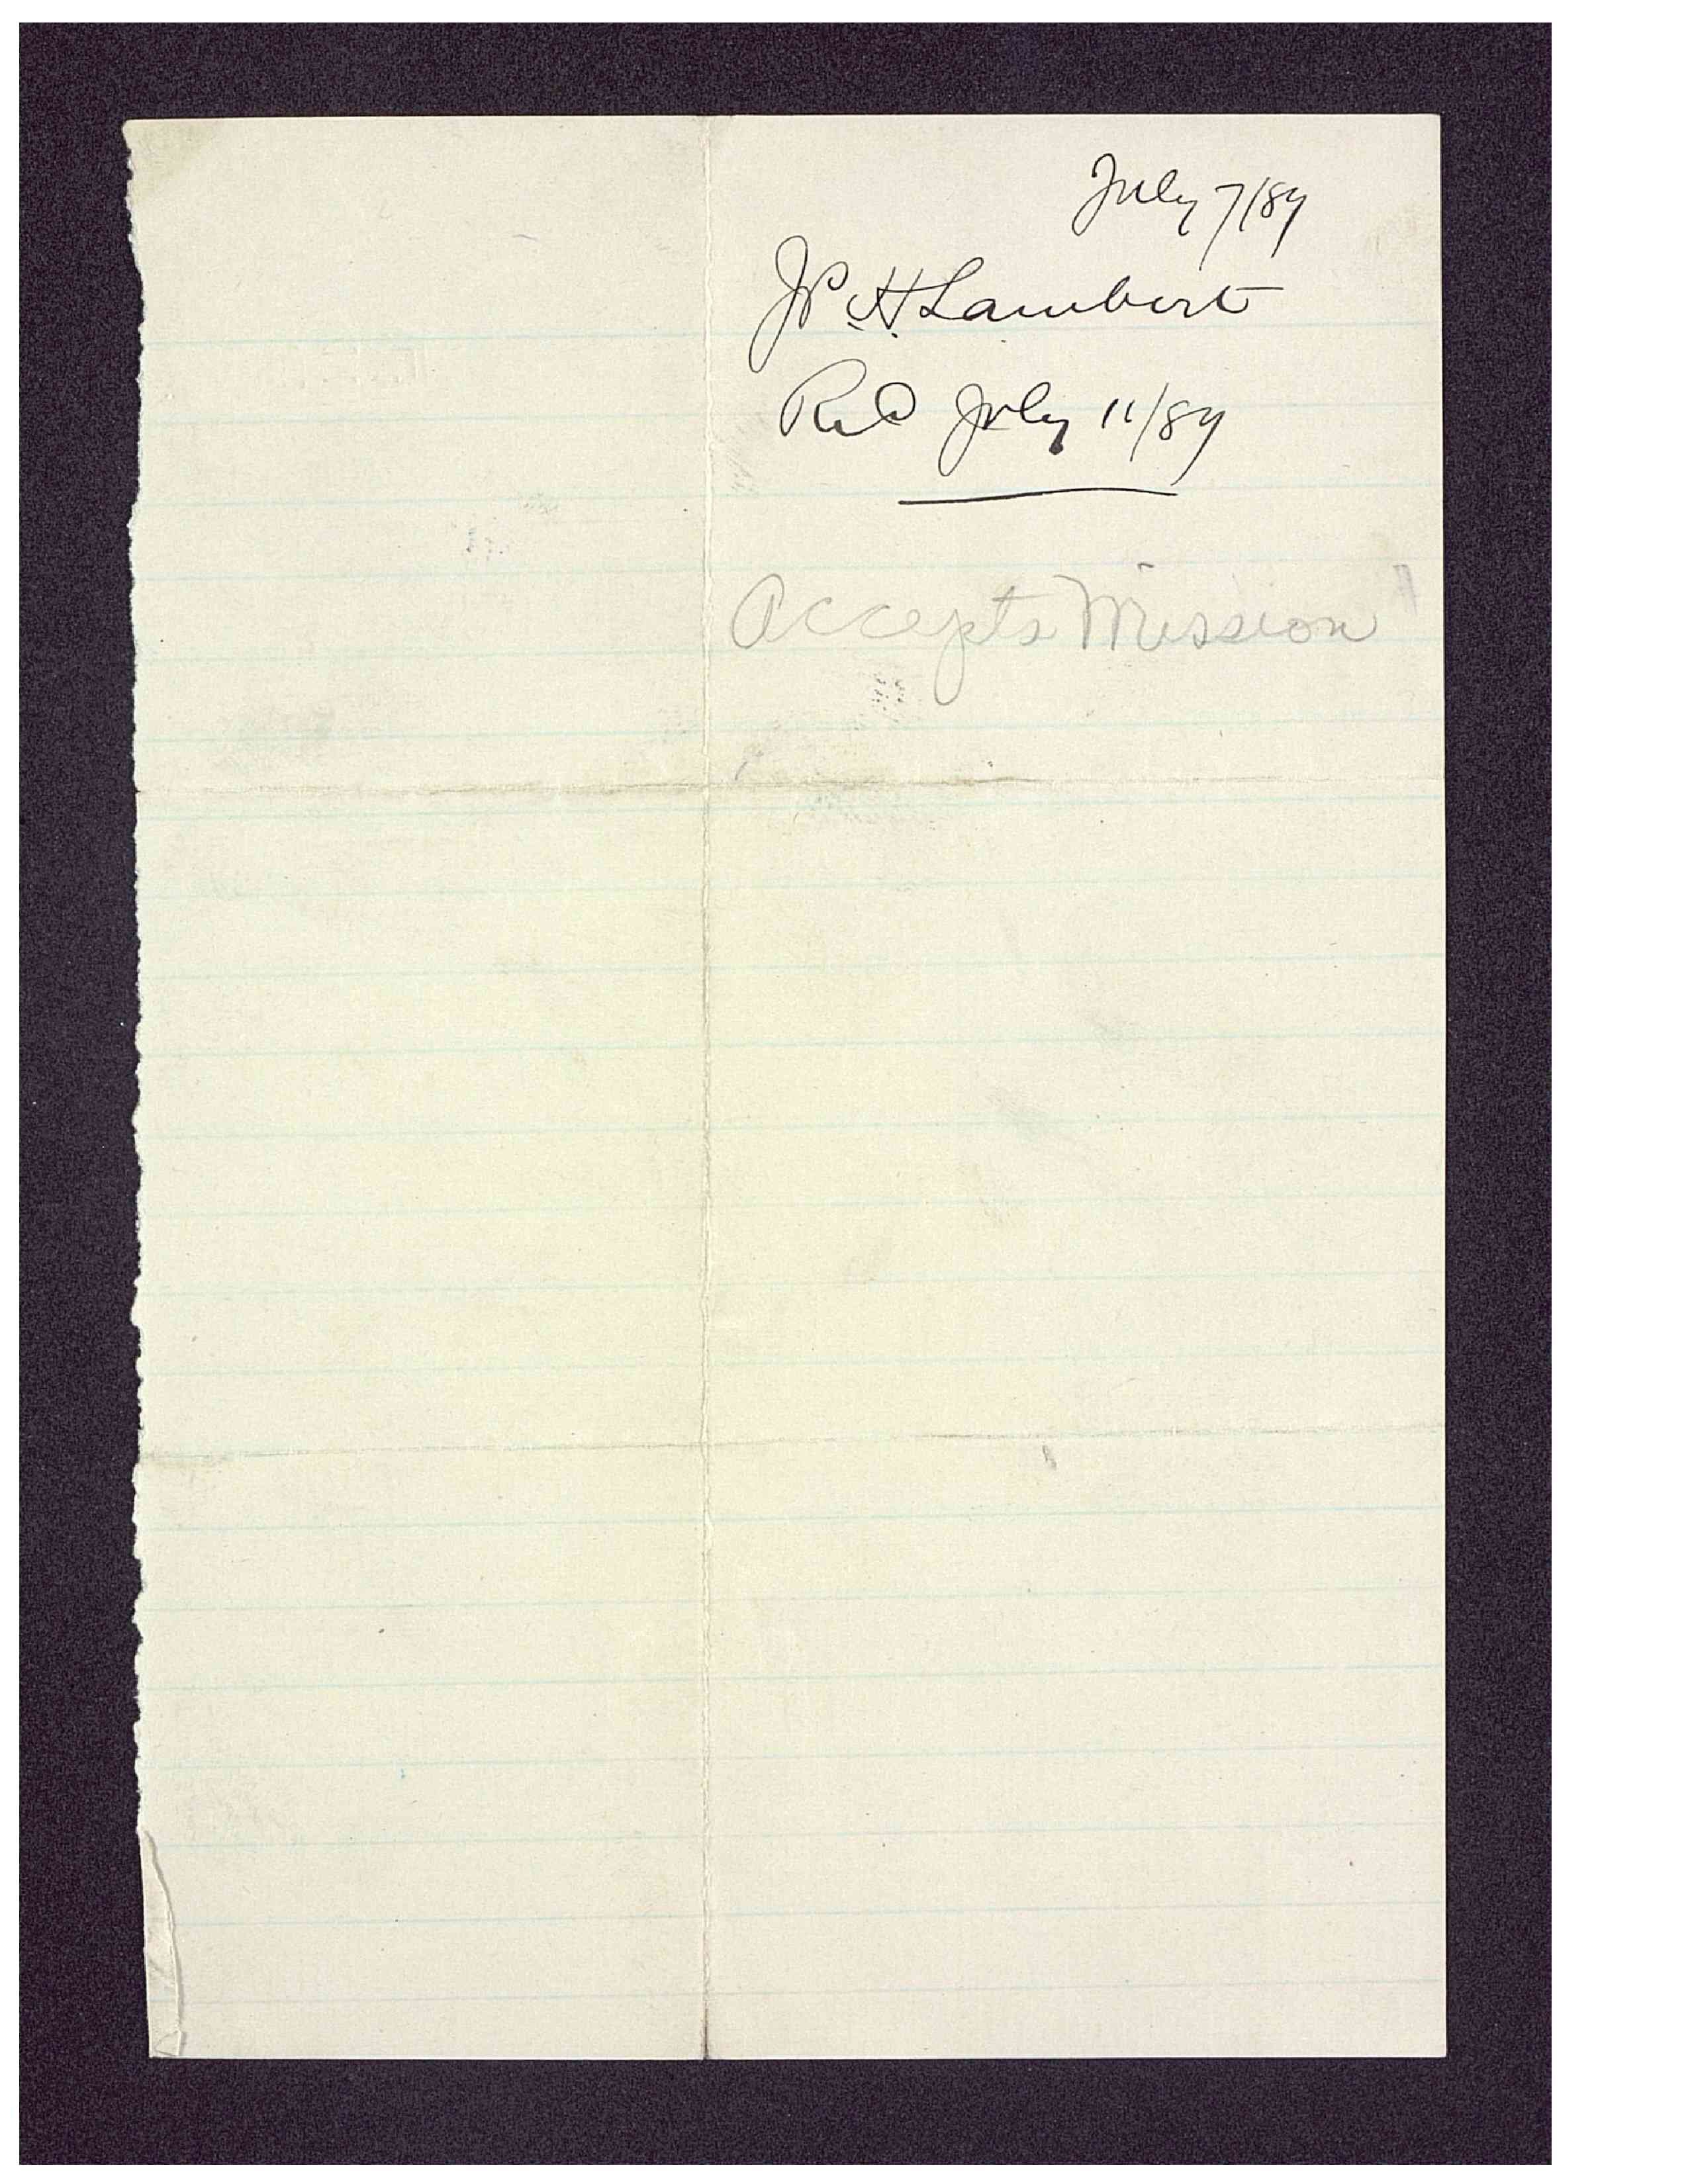 July 7/89
Jos. H. Lambert
Recd July 11/89
Accepts Mission